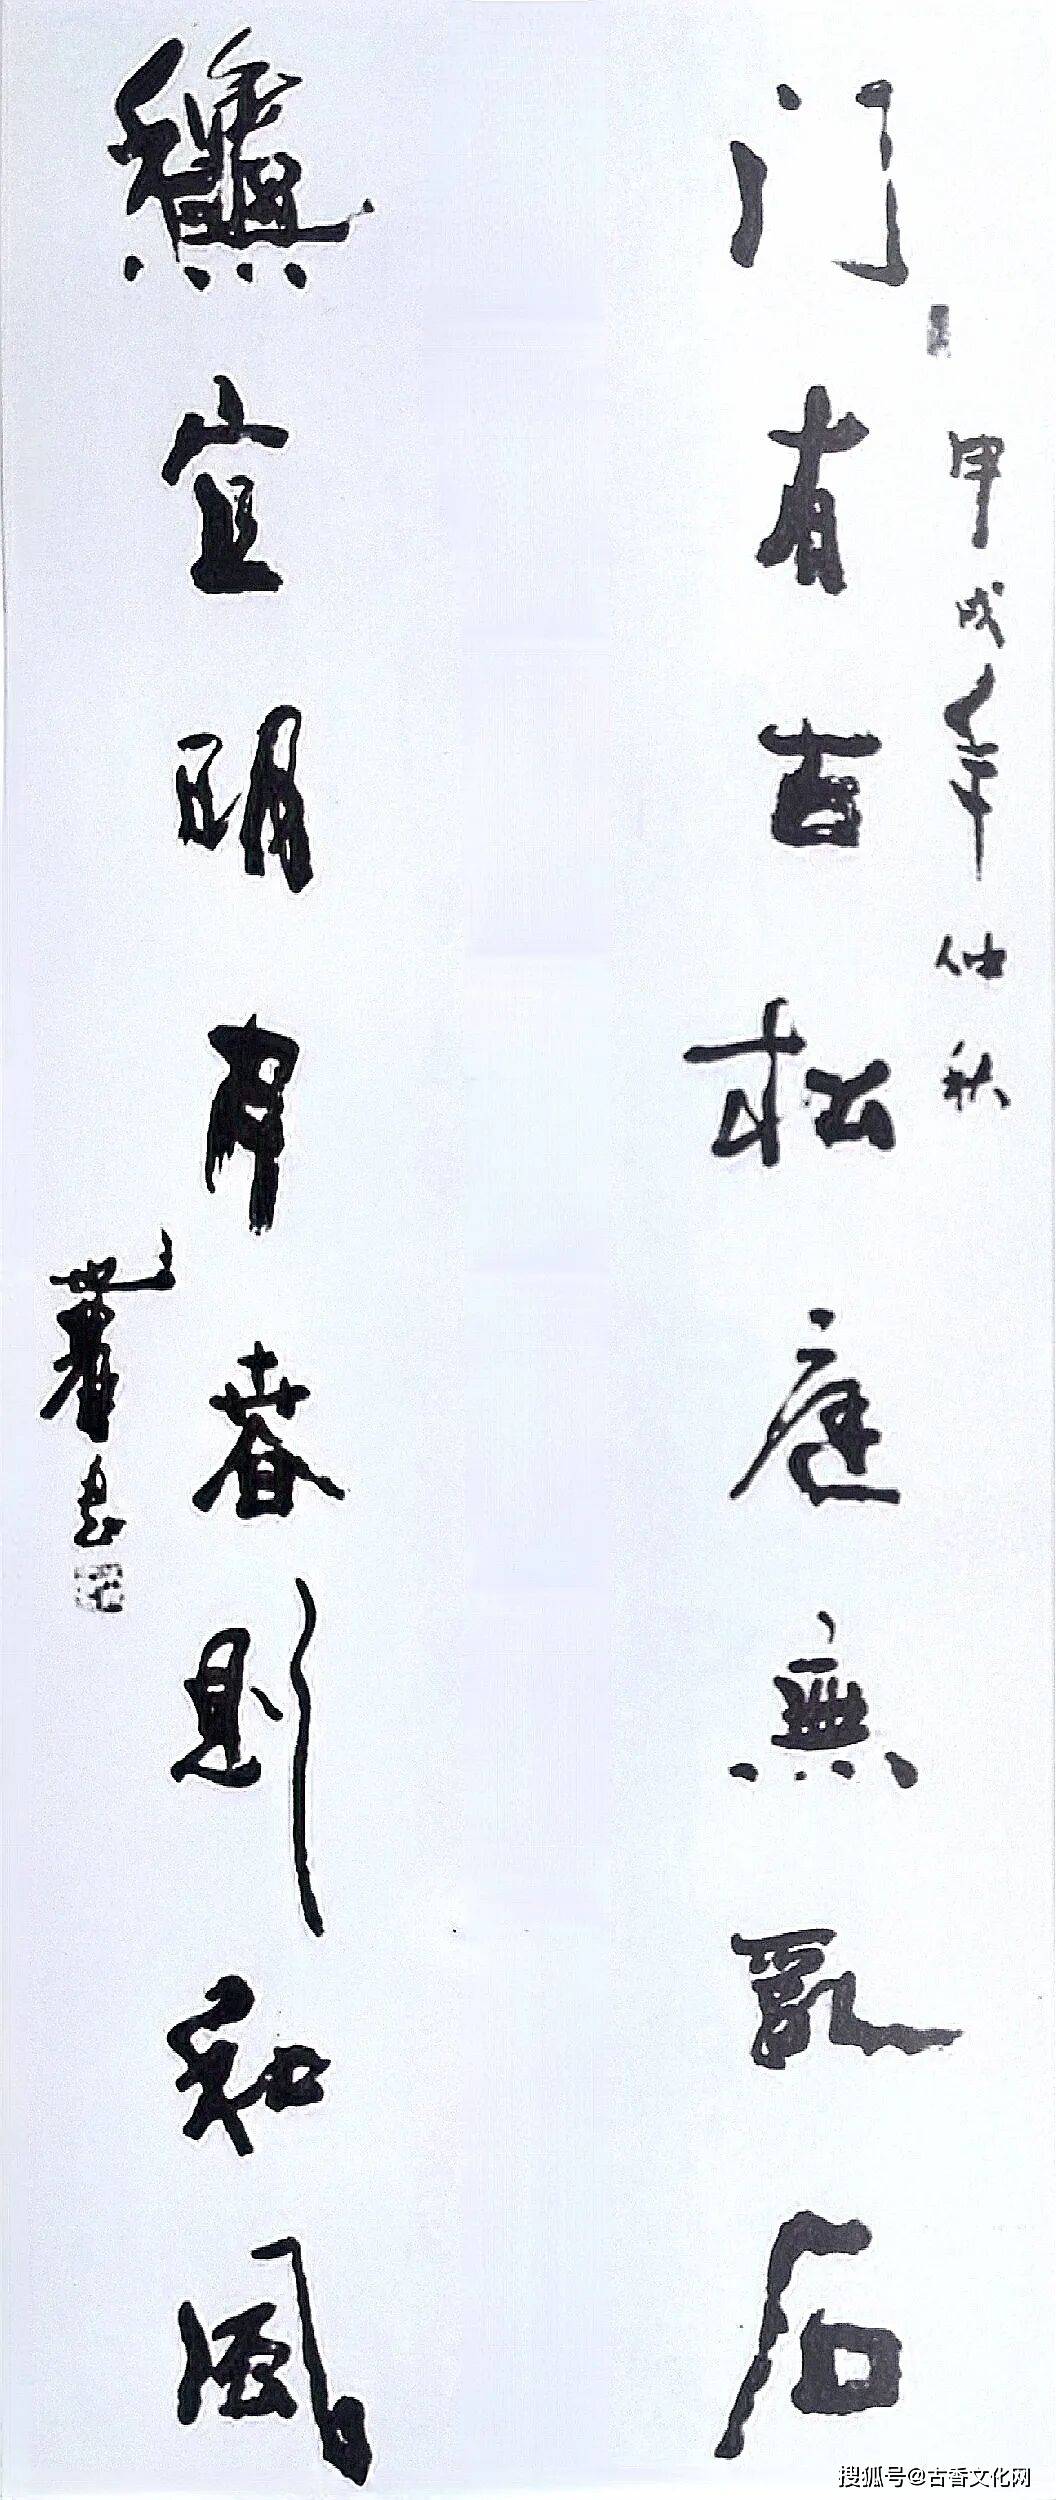 门有古松庭無亂石
甲戌年仲秋
龝宜明月春則和風
書
搜狐号@古香文化网